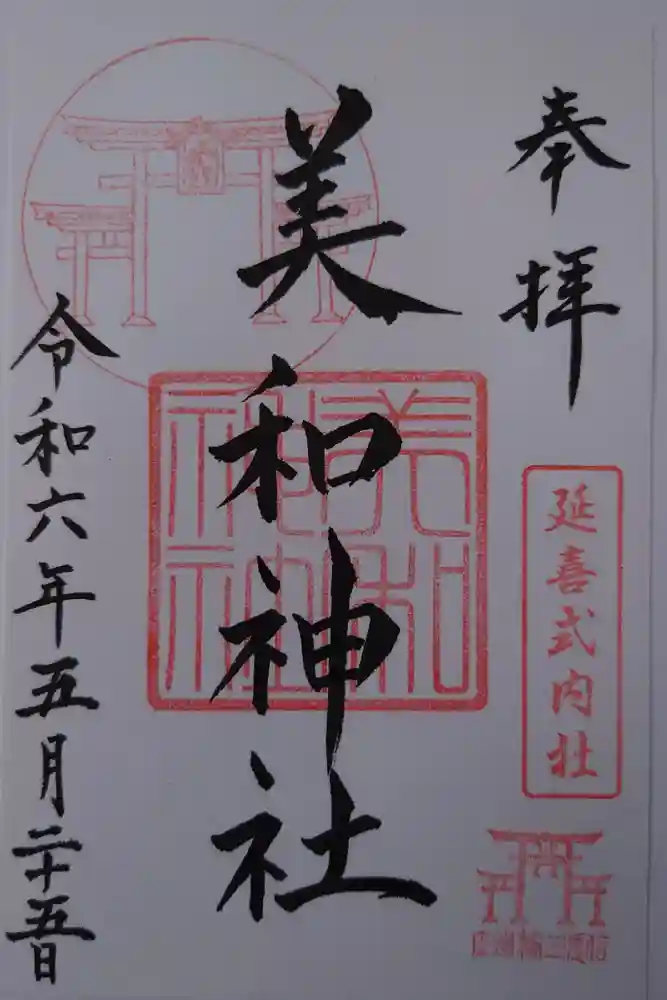 奉拝
延喜式内社
美和神社
美和神社
令和六年五月二十五日